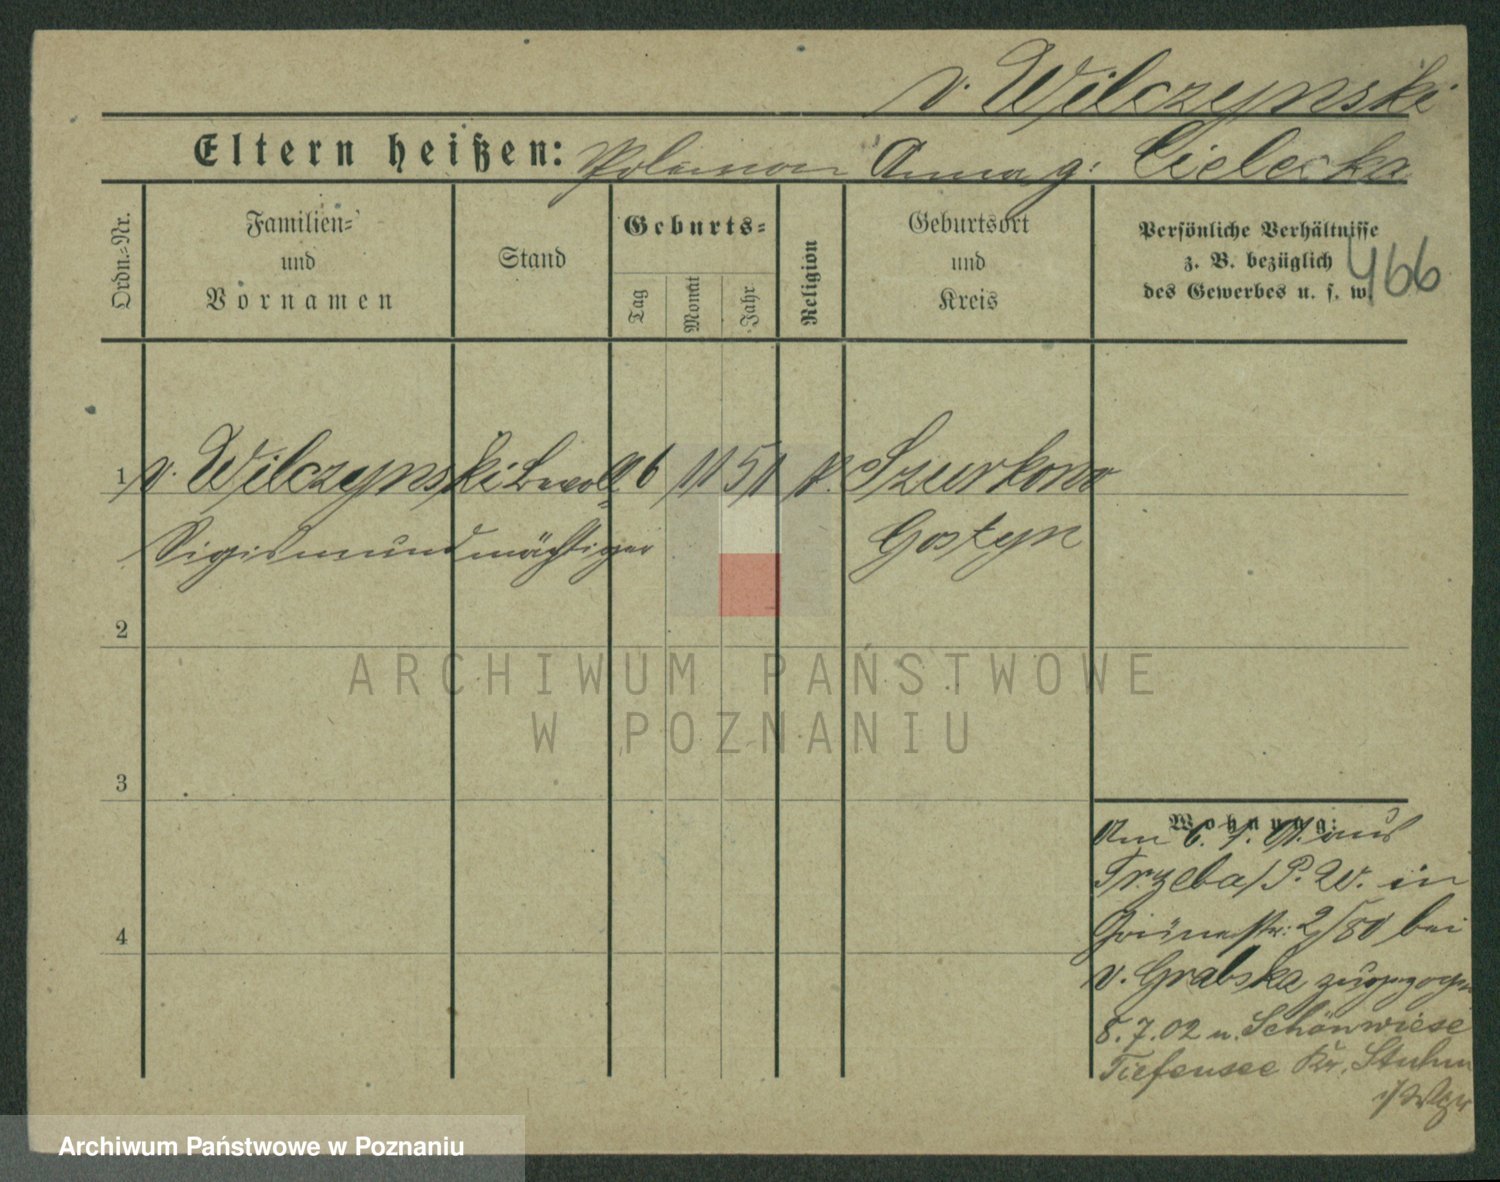 v. Wilczynski
Eltern heißen: Polemon Anna g. Cielecka
Ordn.-Nr.
Familien-
und
Vornamen
Stand
Geburts-
Tag
Monat
Jahr
Religion
Geburtsort
und
Kreis
Persönliche Verhältnisse
z. B. bezüglich
des Gewerbes u. s. w.
466
1 v. Wilczynski Bevoll 6 11 51 Szurkowo
Sigismund mächtiger Gostyn
2
ARCHIWUM PAŃSTWOWE
W POZNANIU
3
Wohnung:
Am 6. 1. 01. aus
Trzeba/P. W. in
Grünestr: 2/80 bei
v. Grabska zugezogen
8.7.02 n. Schönwiese
Tiefensee Kr. Stuhm
i/Wpr
4
Archiwum Państwowe w Poznaniu